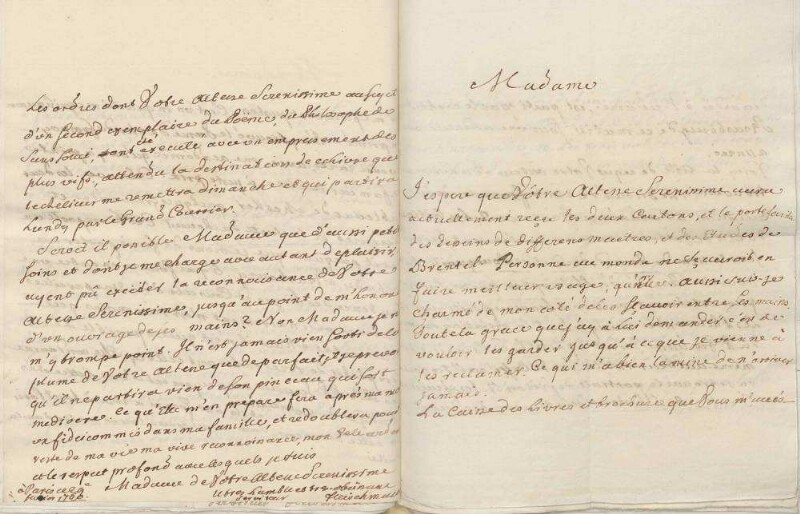 Les ordres dont Votre Altesse Serenissime au sujet
d'un second exemplaire du Poëme du Philosophe de
Sans Souci, sont executé avec un empressement des
plus vifs, attendu la destination de ce livre que
le relieur me remettra dimanche et qui partira
Lundy par le Grand Courrier.
Seroit il possible Madame que d'aussi petits
soins et dont je me charge avec autant de plaisir,
ayent pû exciter la reconnoissance de Votre
Altesse Serenissime, jusqu'au point de m'honorer
d'un ouvrage de ses mains? Non Madame je ne
m'y trompe point. Il n'est jamais rien sorti de la
plume de Votre Altesse que de parfait, et je prevois
qu'il ne partira rien de son pinceau qui soit
mediocre. Ce qu'Elle m'en prepare sera après ma mort
un fideicommis dans ma famille, et redoublera pour le
reste de ma vie ma vive reconnoissance, mon zele ardent
et le respect profond avec lesquels je suis
Madame de Votre Altesse Serenissime
à Paris ce 29
le tres humble et tres obeissant
serviteur
Fleischmann
Madame
J'espere que Votre Altesse Serenissime aura
actuellement reçu les deux Cartons, et le portefeuille
des desseins de differens maitres, et des Etudes de
Brentel. Personne au monde ne sçauroit en
faire meilleur usage, qu'Elle, aussi suis-je
charmé de mon coté de les sçavoir entre ses mains.
Toute la grace que j'ay à lui demander c'est de
vouloir les garder jusqu'à ce que je vienne à
les reclamer. Ce qui m'a bien la mine de n'arriver
jamais.
La Caisse des Livres et brochure que Vous m'avés